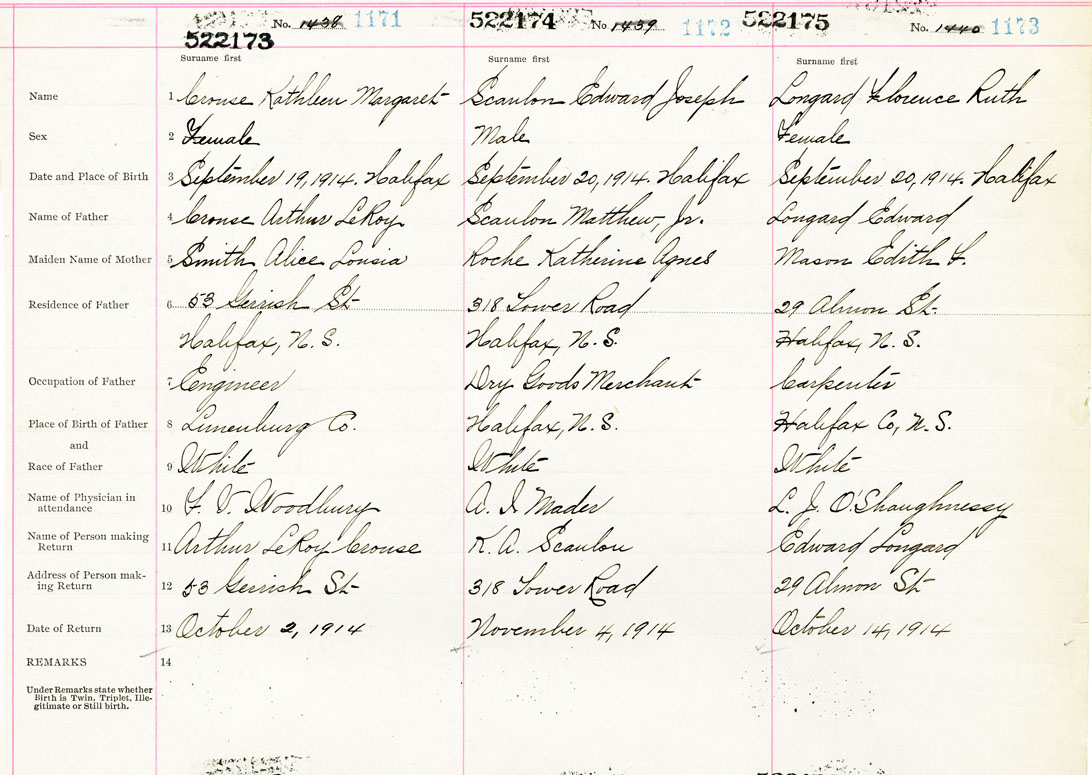 No. 1438 1171
522173
522174 No 1439 1172
522175 No. 1440 1173
Surname first Surname first Surname first
Name 1 Crouse Kathleen Margaret Scanlon Edward Joseph Longard Florence Ruth
Sex 2 Female Male Female
Date and Place of Birth 3 September 19, 1914. Halifax September 20, 1914. Halifax September 20, 1914. Halifax
Name of Father 4 Crouse Arthur LeRoy Scanlon Matthew, Jr. Longard Edward
Maiden Name of Mother 5 Smith Alice Lousia Roche Katherine Agnes Mason Edith F.
Residence of Father 6 53 Gerrish St 318 Tower Road 29 Almon St.
Halifax, N. S. Halifax, N. S. Halifax, N. S.
Occupation of Father 7 Engineer Dry Goods Merchant Carpenter
Place of Birth of Father 8 Lunenburg Co. Halifax, N. S. Halifax Co, N. S.
and
Race of Father 9 White White White
Name of Physician in
attendance 10 F. V. Woodbury A. I. Mader L. J. O'Shaughnessy
Name of Person making
Return 11 Arthur LeRoy Crouse K. A. Scanlon Edward Longard
Address of Person mak-
ing Return 12 53 Gerrish St 318 Tower Road 29 Almon St
Date of Return 13 October 2, 1914 November 4, 1914 October 14, 1914
REMARKS 14
Under Remarks state whether
Birth is Twin, Triplet, Ille-
gitimate or Still birth.